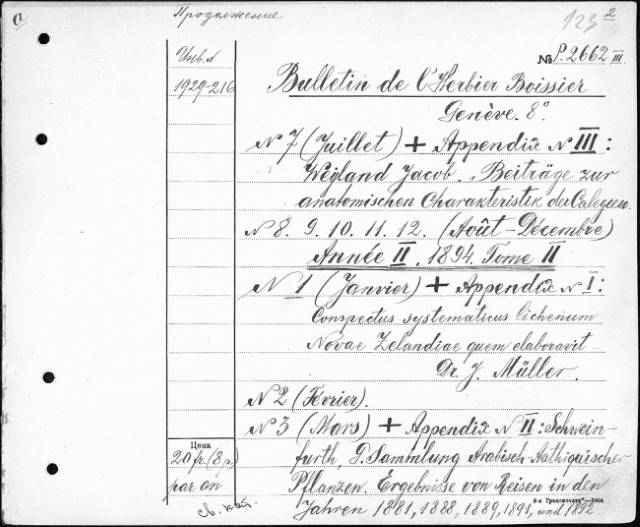 Продолжение
123 2
Инв. №
1929-216
№ P. 2662 III
Bulletin de l'Herbier Boissier
Genève. 8°.
N 7 (Juillet) + Appendix N III:
Weyland Jacob. Beiträge zur
anatomischen Charakteristik der Galegeen.
N 8. 9. 10. 11. 12. (Août-Décembre)
Année II. 1894. Tome II
N 1 (Janvier) + Appendix N I:
Conspectus systematicus lichenum
Novae Zelandiae quem elaboravit
Dr. J. Müller.
N 2 (Fevrier).
N 3 (Mars) + Appendix N II: Schwein-
furth, Sammlung Arabisch-Aethiopischer
Pflanzen. Ergebnisse von Reisen in den
Jahren 1881, 1888, 1889, 1891, und 1892
Цена
20 fr. (8 р.)
par an
св. кат.